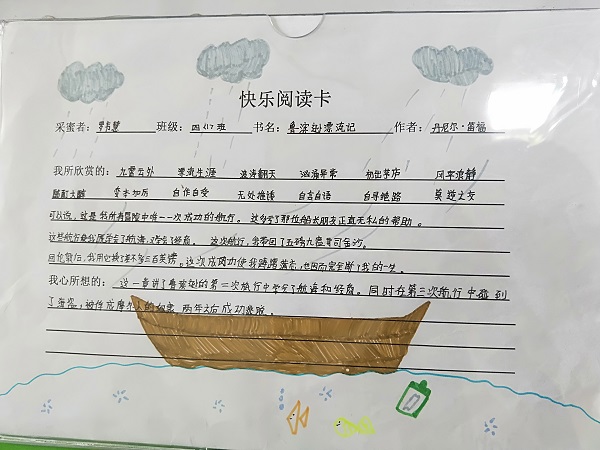 快乐阅读卡
采蜜者: 班级:四(1)班 书名:鲁滨逊漂流记 作者:丹尼尔·笛福
我所欣赏的:九霄云外 漂流生涯 波涛翻天 汹涌异常 初出茅庐 风平浪静
受不如历 自作自受 无处推诿 自言自语 自寻绝路 莫逆之交
可以说,这是我所有冒险中唯一一次成功的航行。这多亏了那位船长朋友正直无私的帮助。
这些航行使我既学会了航海,又学会了经商。这次航行,我带回了五磅九盎司金沙。
回伦敦后,我用它换了差不多三百英镑。这次成功使我踌躇满志,也因而完全断了我的一生。
我心所想的:这一章讲了鲁滨逊的第一次航行中学会了航海和经商。同时在第三次航行中碰到
了海盗,被俘 两年之后成功出逃。